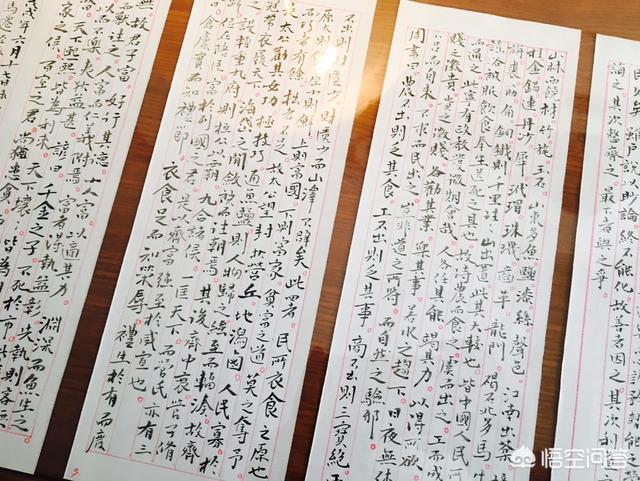 說以眇論終不能化故善者因之其次利
誨之其次整齊之最下者與之爭
山林饒材竹旄玉石山東多魚鹽漆絲聲色江南出
桂金錫連丹沙犀玳瑁珠璣齒革龍門碣石北多馬牛
旃裘筋角銅鐵則千里往
山出棊置此其大較也皆中國人民所
謠俗被服飲食奉生送死之具也故待農而食之虞而出之工而成
而通之此寧有政教發徵期會哉人各任其能竭其力以得所欲
賤之徵貴貴之徵賤各勸其業樂其事若水之趨下日夜無休
不召而自來不求而民出之豈非道之所符而自然之驗邪
周書曰農不出則乏其食工不出則乏其事商不出則三寶絕
不出則財匱少財匱少而山澤不辟矣此四者民所衣食之原也
原大則饒原小則鮮上則富國下則富家貧富之道莫之奪予
而巧者有餘拙者不足故太公望封於營丘地潟鹵人民寡於
是太公勸其女功極技巧通魚鹽則人物歸之繈至而輻湊故齊
冠帶衣履天下海岱之間斂袂而往朝焉其後齊中衰管子脩
之設輕重九府則桓公以霸九合諸侯一匡天下而管氏亦有三
歸位在陪臣富於列國之君是以齊富彊至於威宣也
倉廩實而知禮節衣食足而知榮辱禮生於有而廢
無故君子富好行其德小人富以適其力淵深而魚生之
而獸往之人富而仁義附焉富者得執益彰失執則客無
以而不樂夷狄益甚諺曰千金之子不死於市
天下熙熙皆為利來天下壤壤皆為利
百室之君尚猶患貧
戊年六月十七日
悟空问答